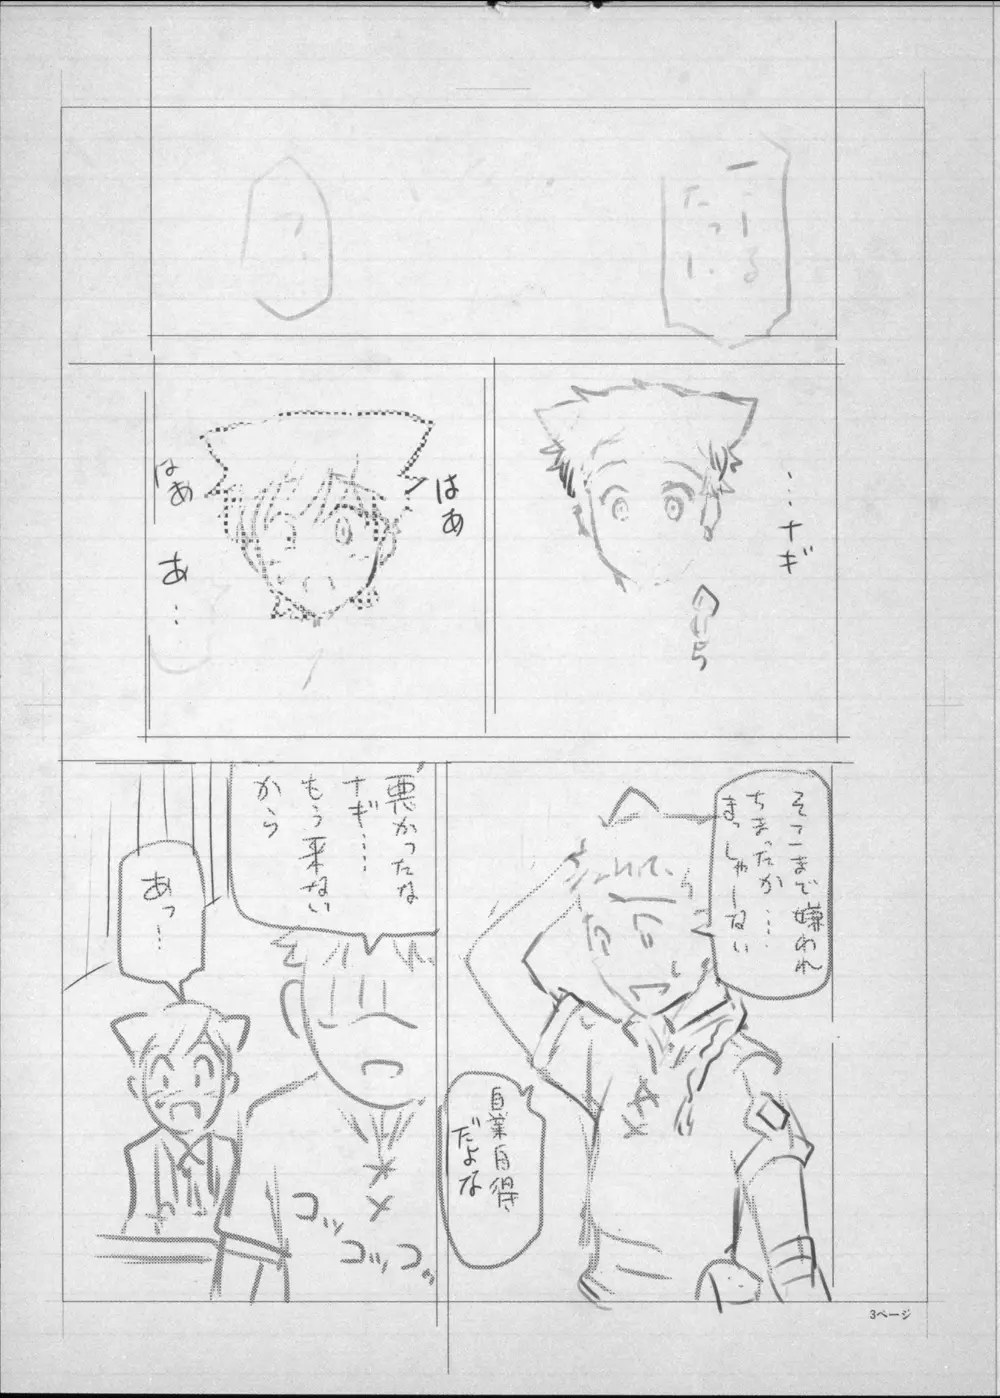 …ナギ
はあ
はあ
あ…
そこまで嫌われ
ちまったか…
まっしゃーない
自業自得
だよな
悪かったな
ナギ…
もう来ない
から
あっ…
コッ
コッ
コッ
3ページ